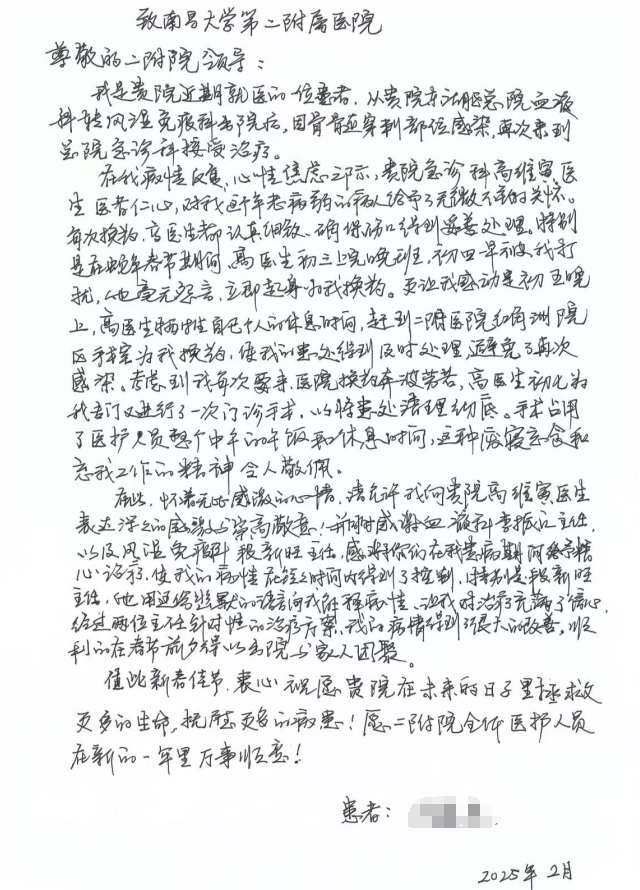 致南昌大学第二附属医院
尊敬的二附院领导：
我是贵院近期就医的一位患者，从贵院东湖区总院血液
科转风湿免疫科出院后，因骨髓穿刺部位感染，再次来到
总院急诊科接受治疗。
在我病情反复、心情焦虑之际，贵院急诊科高维寅医
生医者仁心，对我这个年老病弱的病人给予了无微不至的关怀。
每次换药，高医生都认真细致，确保伤口得到妥善处理。特别
是在蛇年春节期间，高医生初三上晚班，初四早被我打
扰，他毫无怨言，立即起身为我换药。更让我感动是初五晚
上，高医生牺牲自己个人的休息时间，赶到二附医院红角洲院
区手术室为我换药，使我的患处得到及时处理，避免了再次
感染。考虑到我每次要来医院换药奔波劳苦，高医生初七为
我专门又进行了一次门诊手术，以将患处清理彻底。手术占用
了医护人员整个中午的午饭和休息时间，这种废寝忘食和
忘我工作的精神令人敬佩。
在此，怀着无比感激的心情，请允许我向贵院高维寅医生
表达深深的感激与崇高敬意，并同时感谢血液科李振江主任，
以及风湿免疫科段新旺主任，感谢你们在我患病期间给予精
心诊疗，使我的病情在短时间内得到了控制，特别是段新旺
主任，他用幽默的语言向我解释病情，让我对治疗充满了信心，
经过两位主任针对性的治疗方案，我的病情得到了很大的改善，顺
利的在春节前夕得以出院与家人团聚。
值此新春佳节，衷心祝愿贵院在未来的日子里拯救
更多的生命，抚慰更多的病患！愿二附院全体医护人员
在新的一年里万事顺意！
患者：
2025年2月